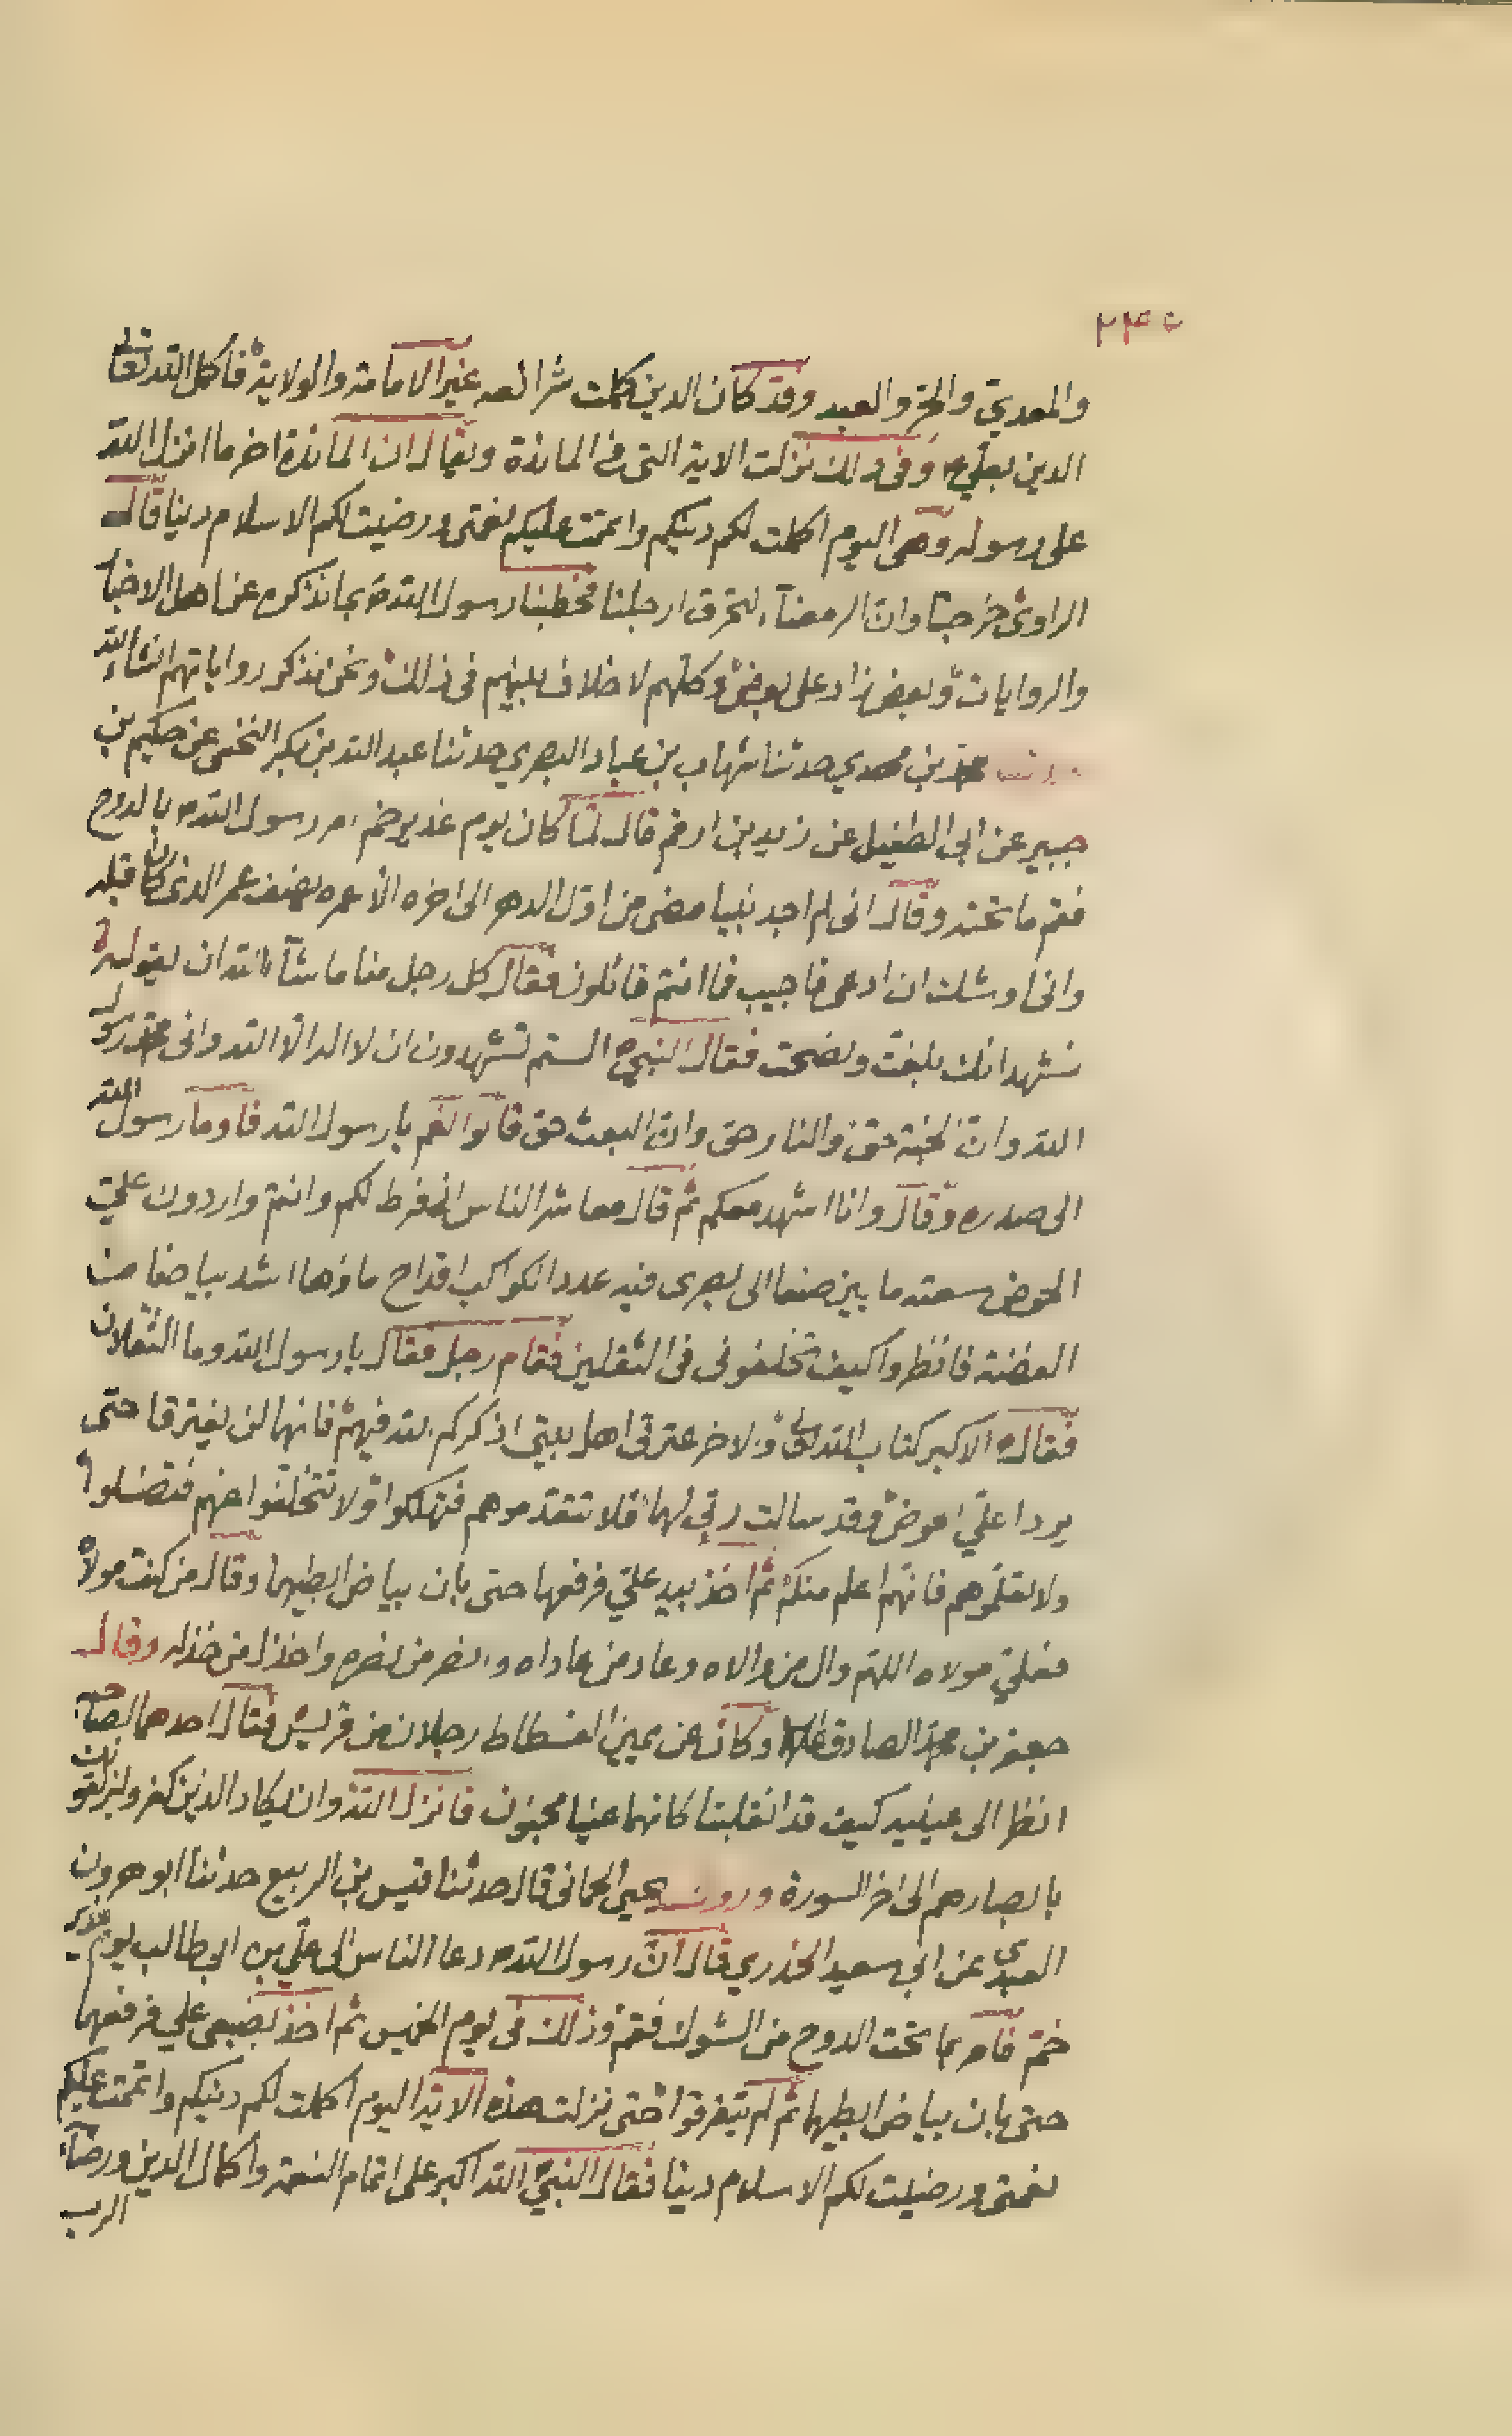 ٢٣٥
والمعدي والحر والعبد وقد كان الدين كملت شرائعه غير الامامة والولاية فاكمل الله تعالى
الدين بعلي وفي ذلك نزلت الاية التي في المائدة ويقال ان المائدة اخر ما انزل الله
على رسوله وهي اليوم اكملت لكم دينكم واتممت عليكم نعمتي ورضيت لكم الاسلام دينا قال
الراوي خرجنا وان الرمضاء لتحرق ارجلنا فخطبنا رسول الله ص بما نذكره عن اهل الاخبار
والروايات وبعض زاد على بعض وكلهم لا خلاف بينهم في ذلك ونحن نذكر رواياتهم انشاء الله
محمد بن مهدي حدثنا شهاب بن عباد البصري حدثنا عبد الله بن بكير النخعي عن حكيم بن
جبير عن ابي الطفيل عن زيد بن ارقم قال لما كان يوم غدير خم امر رسول الله ص بالدوح
فقم ما تحته وقال اني لم اجد نبيا مضى من اول الدهر الى اخره الا عمره نصف عمر الذي كان قبله
واني اوشك ان ادعى فاجيب فما انتم قائلون فقال كل رجل منا ما شاء الله ان يقوله
نشهد انك بلغت ونصحت فقال النبي ص الستم تشهدون ان لا اله الا الله واني محمد رسول
الله وان الجنة حق والنار حق وان البعث حق قالوا نعم يا رسول الله فاوما رسول الله
الى صدره وقال وانا اشهد معكم ثم قال معاشر الناس اني فرط لكم وانتم واردون علي
الحوض سعته ما بين صنعا الى بصرى فيه عدد الكواكب اقداح ماؤها اشد بياضا من
الفضة فانظروا كيف تخلفوني في الثقلين فقام رجل فقال يا رسول الله وما الثقلان
فقال ص الاكبر كتاب الله تعالى والاخر عترتي اهل بيتي اذكركم الله فيهم فانهما لن يفترقا حتى
يردا علي الحوض وقد سالت ربي لهما فلا تتقدموهم فتهلكوا ولا تتخلفوا عنهم فتضلوا
ولا تعلموهم فانهم اعلم منكم ثم اخذ بيد علي فرفعها حتى بان بياض ابطيهما وقال من كنت مولاه
فعلي مولاه اللهم وال من والاه وعاد من عاداه وانصر من نصره واخذل من خذله وقال
جعفر بن محمد الصادق وكان عن يمين الفسطاط رجلان من قريش فقال احدهما لصاحبه
انظر الى عينيه كيف قد انقلبتا كانهما عينا مجنون فانزل الله وان يكاد الذين كفروا ليزلقونك
بابصارهم الى اخر السورة وروى يحيى الحماني قال حدثنا قيس بن الربيع حدثنا ابو هرون
العبدي عن ابي سعيد الخدري قال ان رسول الله ص دعا الناس الى علي بن ابي طالب يوم غدير
خم فامر بما تحت الدوح من الشوك فقم وذلك في يوم الخميس ثم اخذ بضبعي علي فرفعهما
حتى بان بياض ابطيهما ثم لم يتفرقوا حتى نزلت هذه الاية اليوم اكملت لكم دينكم واتممت عليكم
نعمتي ورضيت لكم الاسلام دينا فقال النبي ص الله اكبر على اتمام النعمة واكمال الدين ورضاء
الرب